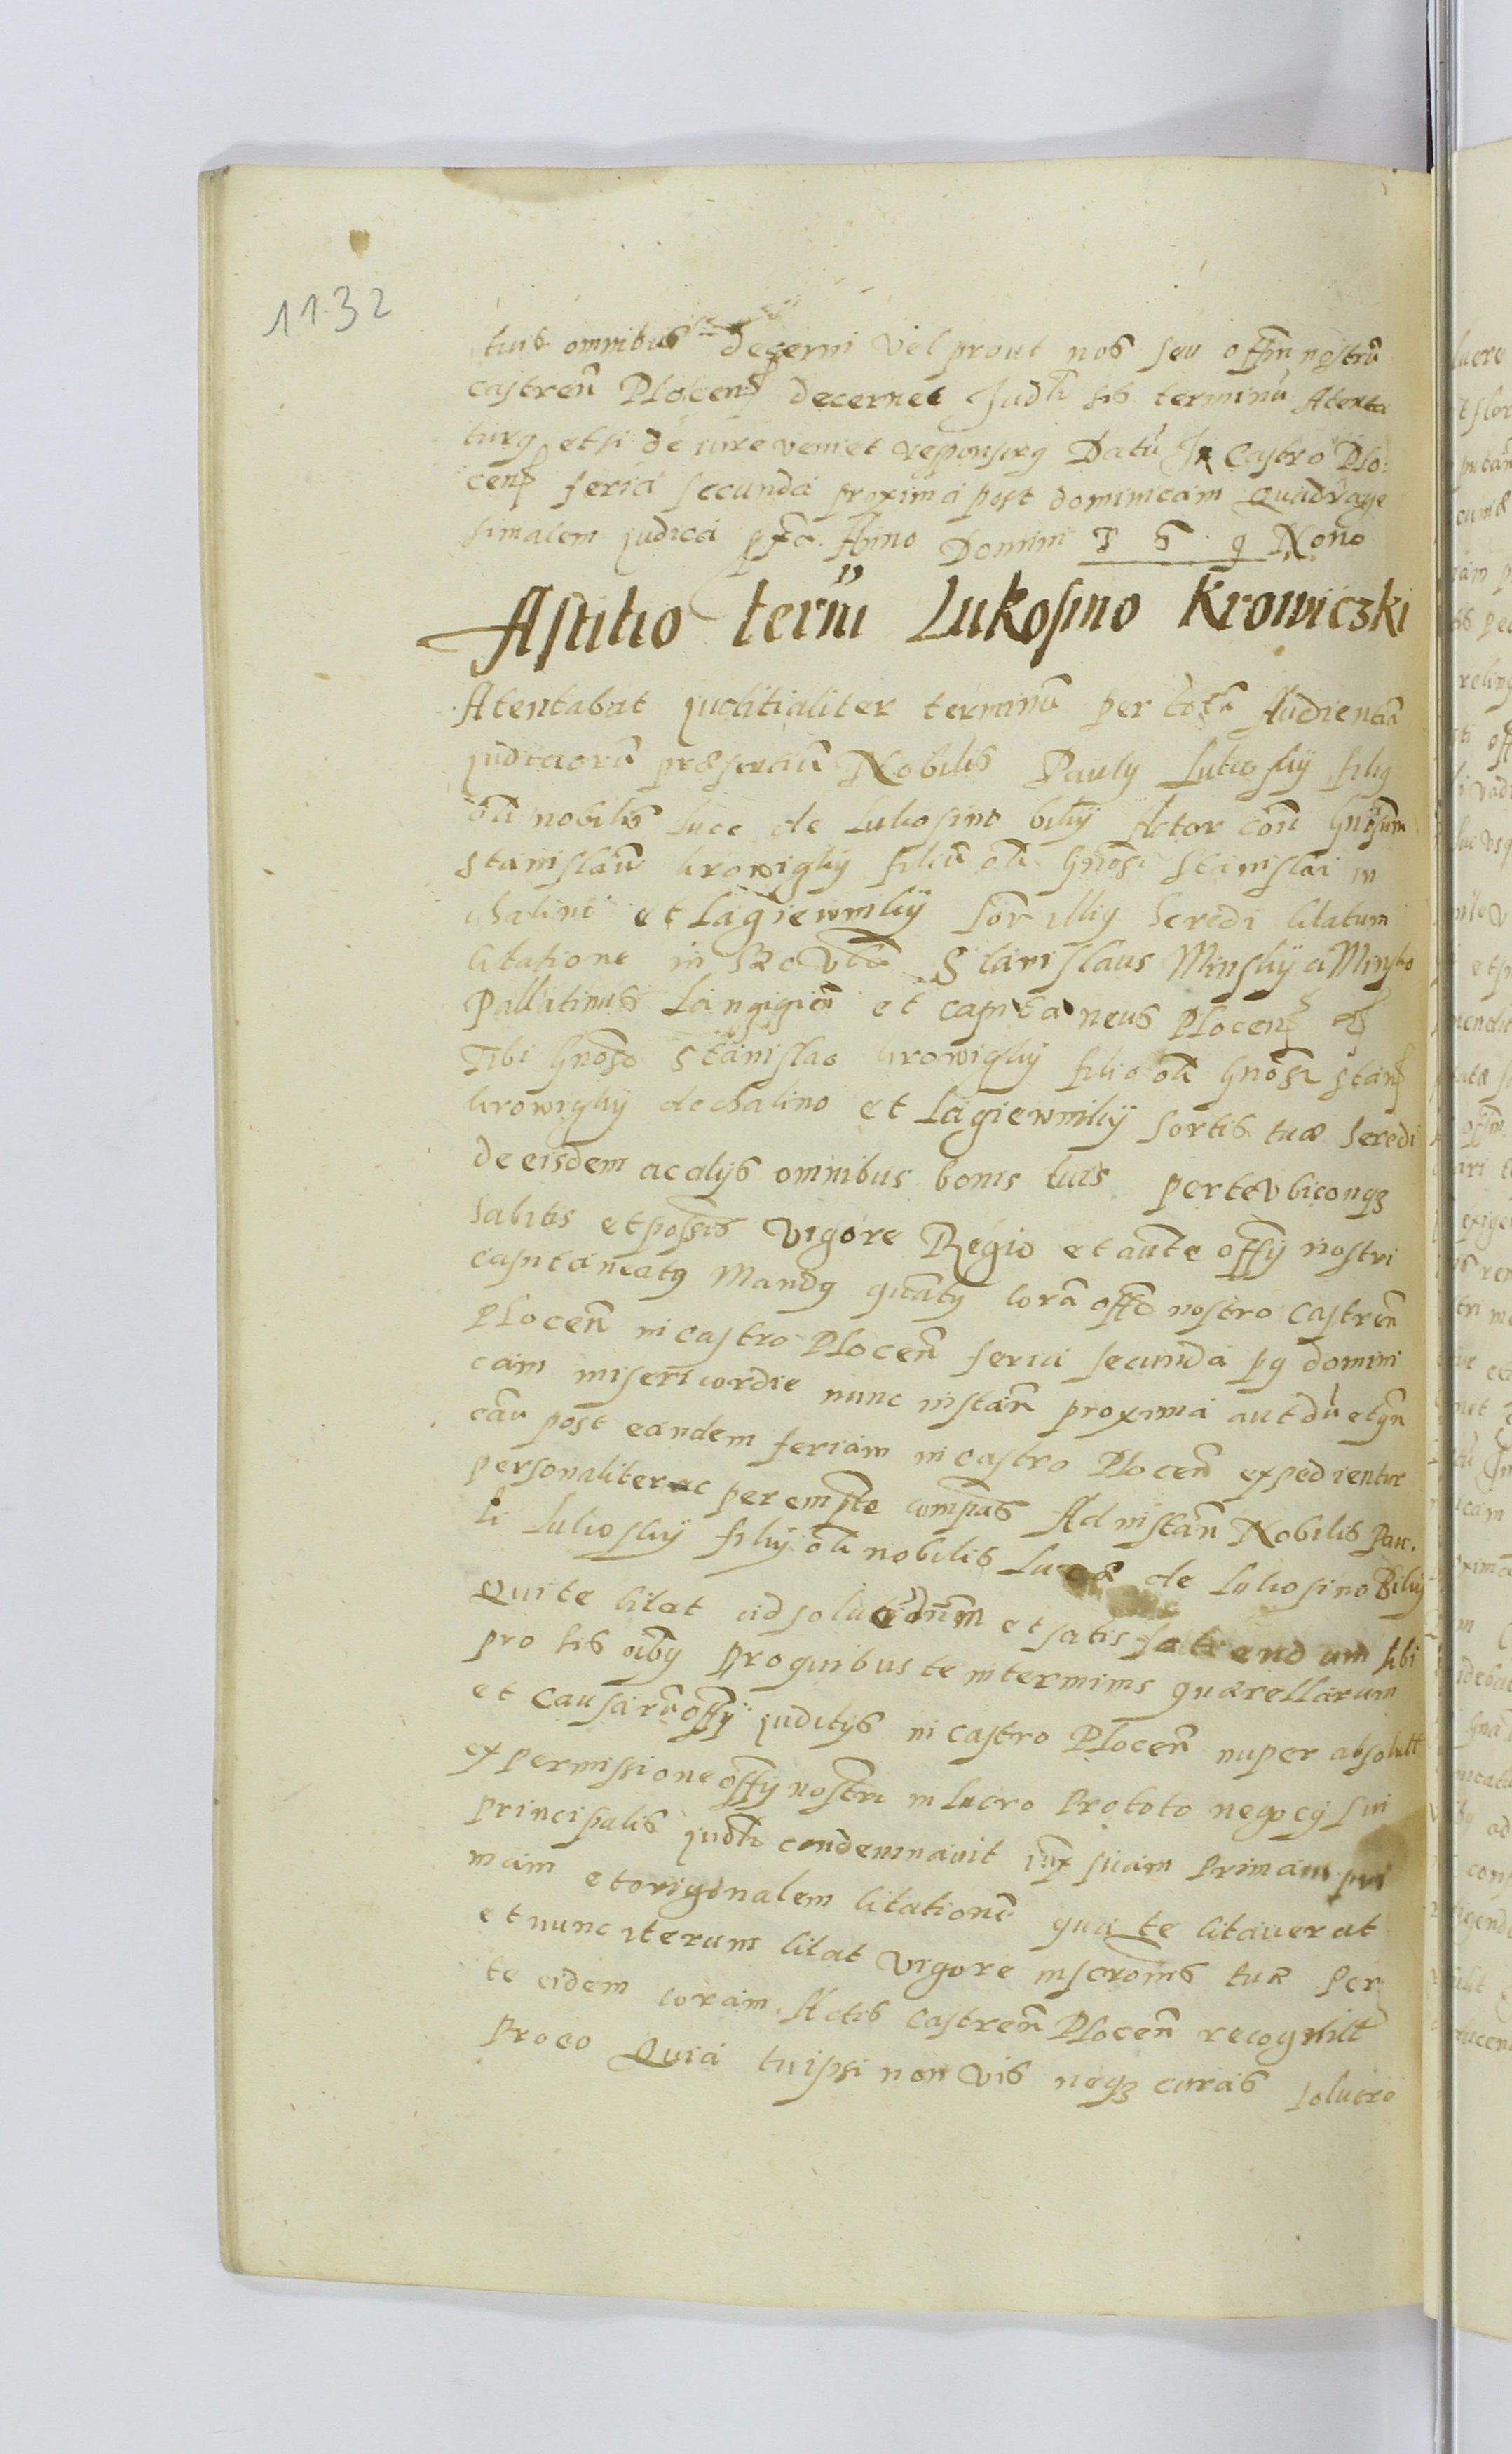 1132
tuis omnibus decerni vel prout nos seu offm̃ nostrũ
castreñ Plocens decernet Judli sis terminũ Atenta
turq et si de iure veniet responsurq Datũ In Castro Plo:
cens feria secunda proxima post dominicam Quadrage
simalem judica pfa Anno Domini T S 9 Nono
Astitio termi Lukosino Krowiczki
Atentabat juditialiter terminũ per totã Audientiã
judiciorũ præsentiũ Nobilis Paulq Lukoskÿ filiq
oli nobilis Luce de Lukosino bilÿ Actor con Gnosum
Stanislaũ krowiczkÿ filiũ oli Gnosi Stanislai in
chalino et Lagiewnikÿ sor illiq heredi citatum
citatione in hæc vba Stanislaus Minskÿ a Minsko
Pallatinus Lancicieñ et capitaneus Plocens
Tibi Gnoso Stanislao krowiczkÿ filio oli Gnosi Stans
krowiczkÿ de chalino et Lagiewnikÿ sortis tuæ heredi
de eisdem ac alijs omnibus bonis tuis per te vbicunqз
habitis et possis vigore Regio et aũte offÿ nostri
capitaneatq Mandq quatq corã offo nostro castreñ
Ploceñ in castro Ploceñ feria secunda pq domini
cam misericordie nunc instañ proxima aut dũ etqñ
cãu post eandem feriam in castro Ploceñ expedientur
personaliter ac peremptе compas Ad instañ Nobilis Pau.
li Lukoskÿ filÿ oli nobilis Lucæ de Lukosino Bilÿ
Qui te citat ad soluedum et satis faciendum sibi
pro his oibq pro quibus te in terminis quærellarum
et causarũ offÿ juditÿs in castro Ploceñ nuper absolut
ex permissione offÿ nostri in lucro pro toto negocÿ sui
principalis judli condemnauit iux suam primam pri
mam et originalem citationẽ qua te citauerat
et nunc iterum citat vigore inscrõnis tuæ per
te eidem coram Actis castreñ Ploceñ recognit
Pro eo Quia tu ipsi non vis neqз curas soluere